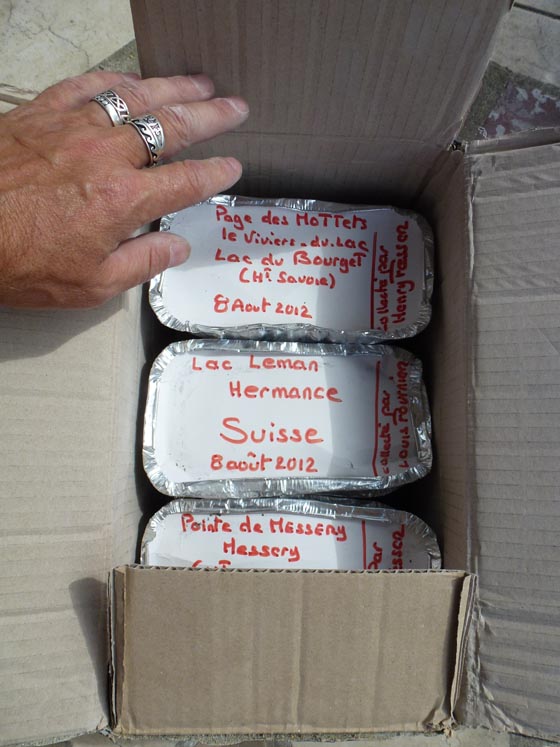 Page des MOTTETS
le Viviers-du-Lac
Lac du Bourget
(Ht Savoie)
8 Aout 2012
collecté par
Henry
Lac Leman
Hermance
Suisse
8 août 2012
collecté par
Louis Fournier
Pointe de MESSERY
Messery
par